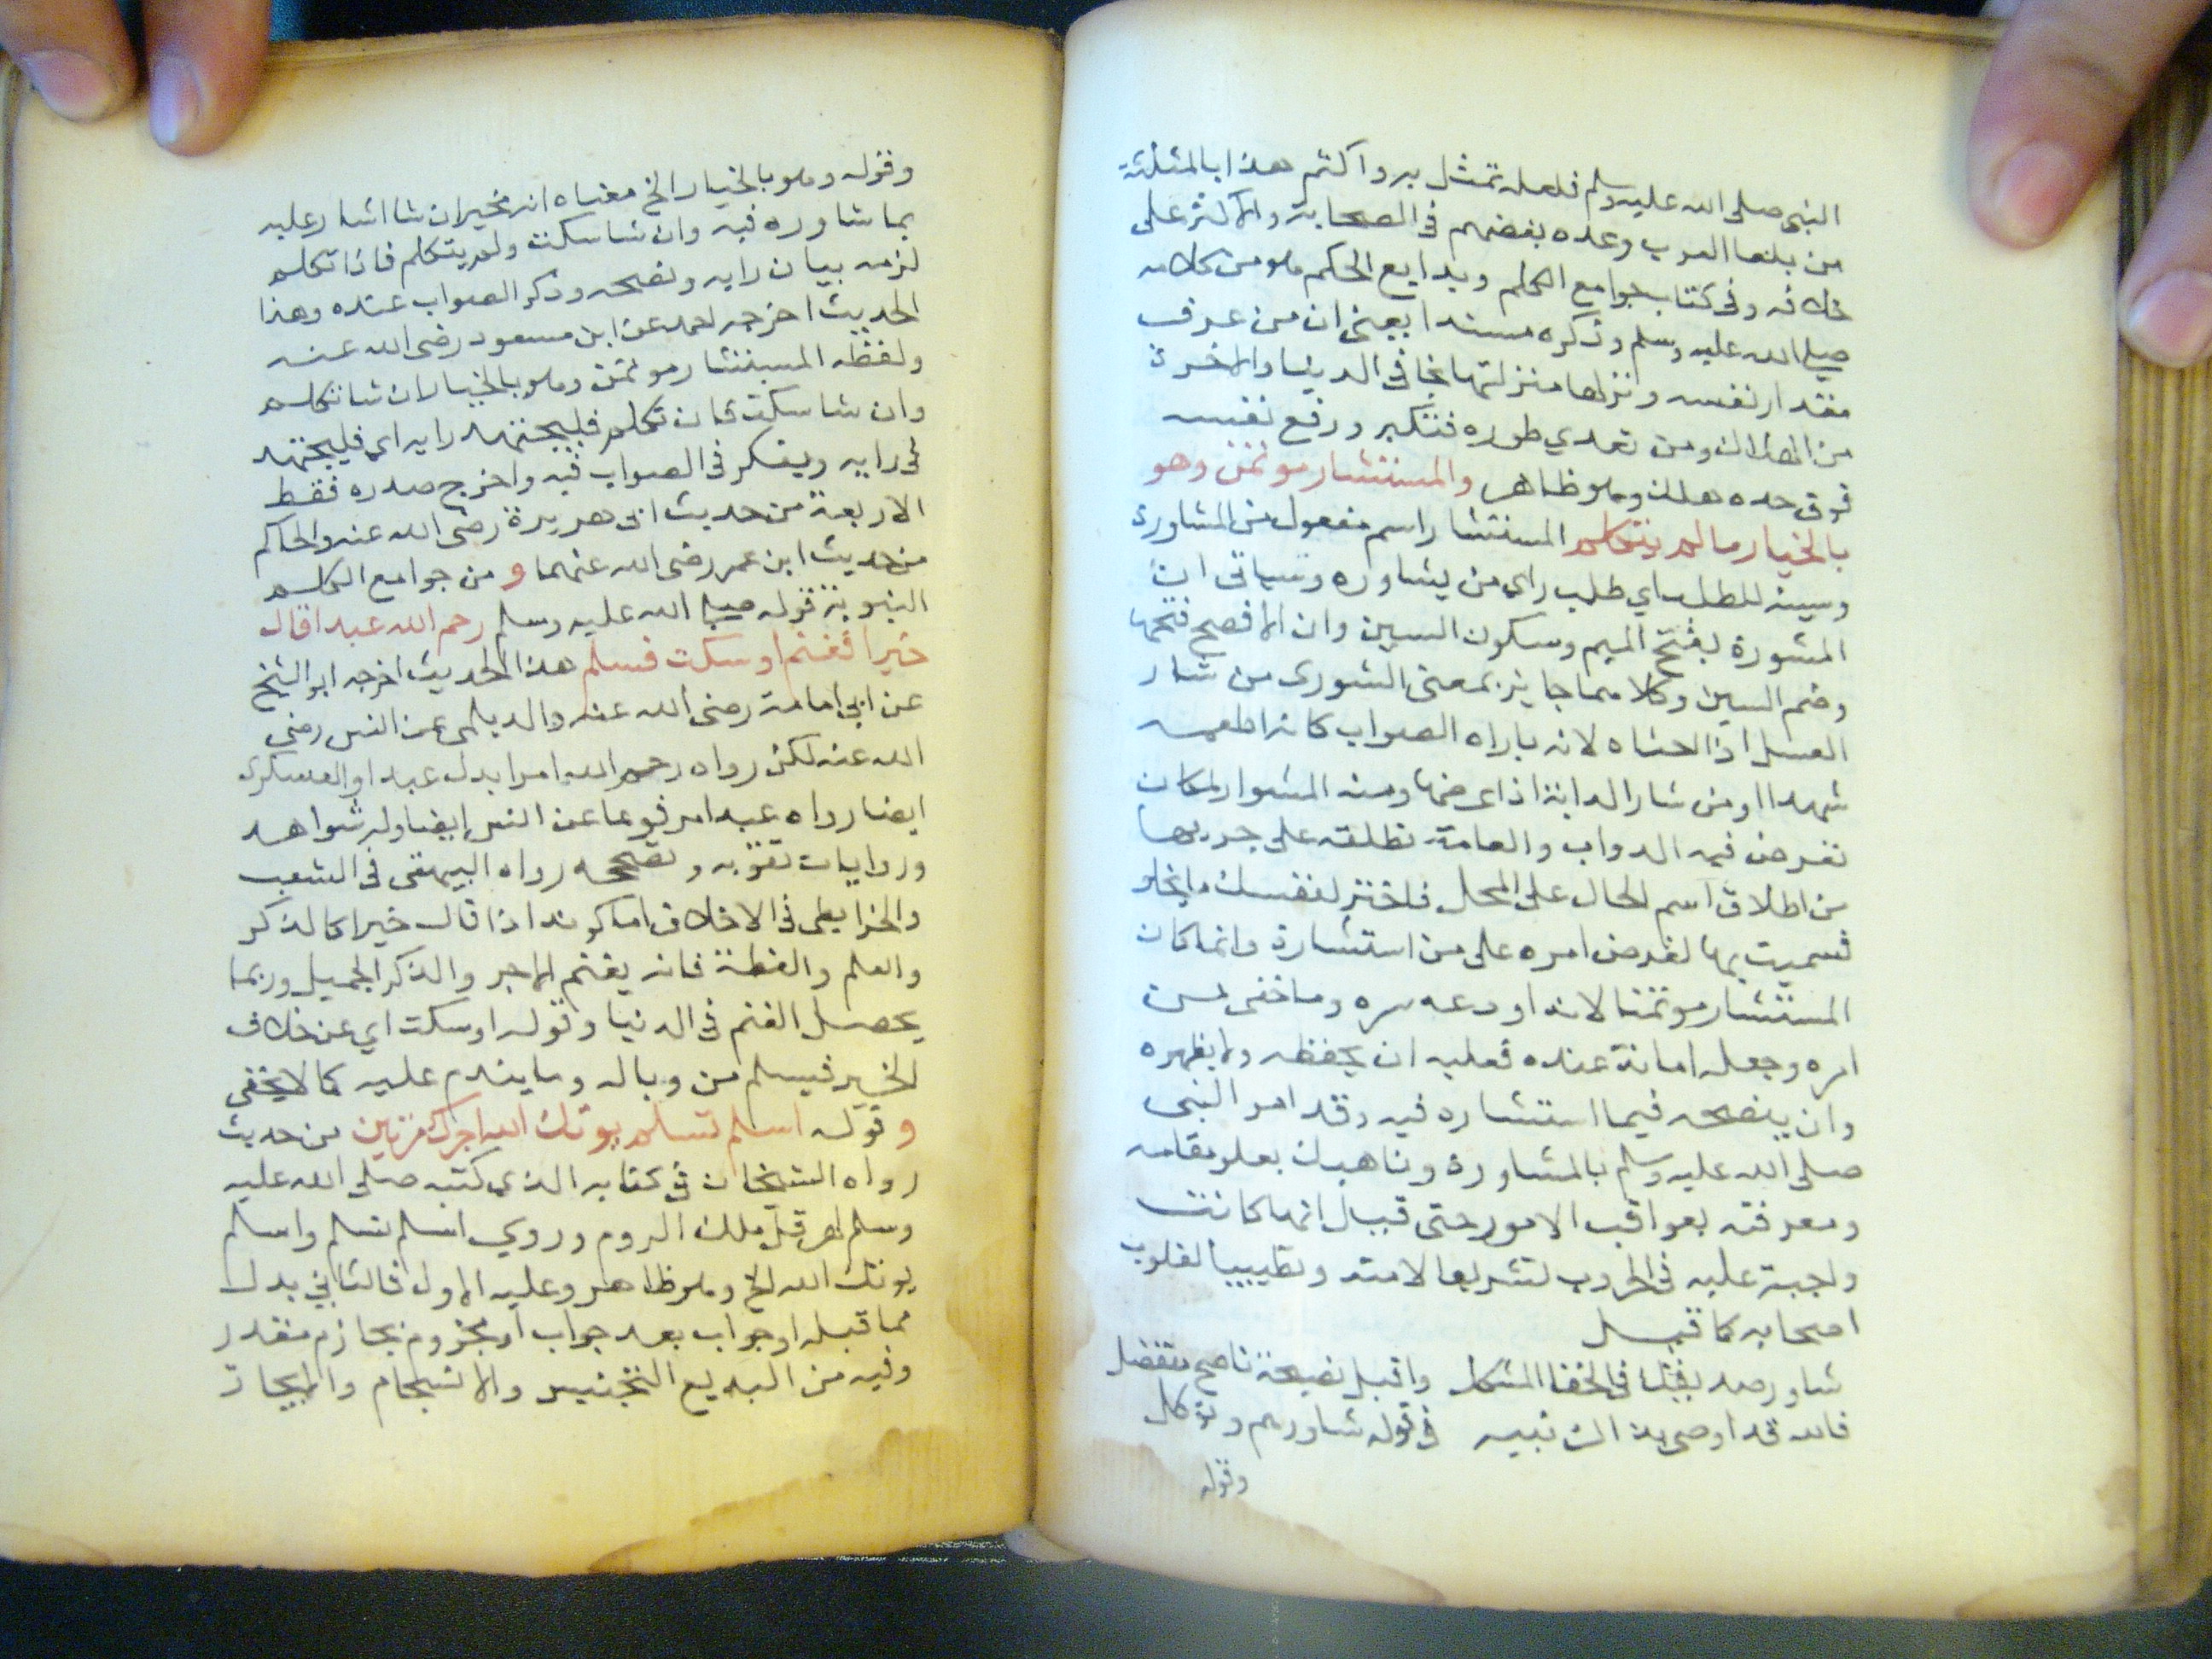 النبي صلى الله عليه وسلم فلعله تمثل به واكثم هذا بالمثلثة
من بلغا العرب وعده بعضهم في الصحابة والاكثر على
خلافه وفي كتاب جوامع الكلم وبدايع الحكم هو من كلامه
صلى الله عليه وسلم وذكره مسندا يعني ان من عرف
مقدار نفسه وانزلها منزلتها نجا في الدنيا والاخرة
من الهلاك ومن تعدي طوره فتكبر ورفع نفسه
فوق حده هلك وهو ظاهر والمستشار موتمن وهو
بالخيار مالم يتكلم المستشار اسم مفعول من المشاورة
وسينه للطلب اي طلب راي من يشاوره وسياتي ان
المشورة بفتح الميم وسكون السين وان الافصح فتحها
وضم السين وكلاهما جايز بمعنى الشورى من شار
العسل اذا اجتناه لانه باراه الصواب كانه اطعمه
شهدا او من شار الدابة اذا عرضها ومنه المشوار لمكان
تعرض فيه الدواب والعامة تطلقه على جريها
من اطلاق اسم الحال على المحل فاختر لنفسك مايحلو
فسميت بها لعرض امره على من استشارة وانما كان
المستشار موتمنا لانه اودعه سره وما خفى من
امره وجعله امانة عنده فعليه ان يحفظه ولا يظهره
وان ينصحه فيما استشاره فيه وقد امر النبي
صلى الله عليه وسلم بالمشاورة وناهيك بعلو مقامه
ومعرفته بعواقب الامور حتى قيل انها كانت
واجبة عليه في الحروب تشريعا لامته وتطييبا لقلوب
اصحابه كما قيل
شاور صديقك في الخفا المشكل واقبل نصيحة ناصح متفضل
فالله قد اوصى بذاك نبيه في قوله شاورهم وتوكل
وقوله
وقوله وهو بالخيار الخ معناه انه مخير ان شا اشار عليه
بما شاوره فيه وان شا سكت ولم يتكلم فاذا تكلم
لزمه بيان رايه ونصحه وذكر الصواب عنده وهذا
الحديث اخرجه احمد عن ابن مسعود رضى الله عنه
ولفظه المستشار موتمن وهو بالخيار ان شا تكلم
وان شا سكت فان تكلم فليجتهد رايه اي فليجتهد
في رايه ويفكر في الصواب فيه واخرج صدره فقط
الاربعة من حديث ابي هريرة رضى الله عنه والحاكم
من حديث ابن عمر رضى الله عنهما و من جوامع الكلم
النبوية قوله صلى الله عليه وسلم رحم الله عبدا قال
خيرا فغنم او سكت فسلم هذا الحديث اخرجه ابو الشيخ
عن ابي امامة رضى الله عنه والديلمي عن انس رضى
الله عنه لكن رواه رحم الله امرا بدل عبدا والعسكري
ايضا رواه عبدا مرفوعا عن انس ايضا وله شواهد
وروايات تقويه وتصححه رواه البيهقي في الشعب
والخرايطي في الاخلاق اما كونه اذا قال خيرا كالذكر
والعلم والعظة فانه يغنم الاجر والذكر الجميل وربما
يحصل الغنم في الدنيا وقوله او سكت اي عن خلاف
الخير فيسلم من وباله وما يندم عليه كما لايخفى
و قوله اسلم تسلم يوتك الله اجرك مرتين من حديث
رواه الشيخان في كتابه الذي كتبه صلى الله عليه
وسلم لهرقل ملك الروم وروي اسلم تسلم واسلم
يوتك الله الخ وهو ظاهر وعليه الاول فالثاني بدل
مما قبله او جواب بعد جواب او مجزوم بجازم مقدر
وفيه من البديع التجنيس والانسجام والايجاز